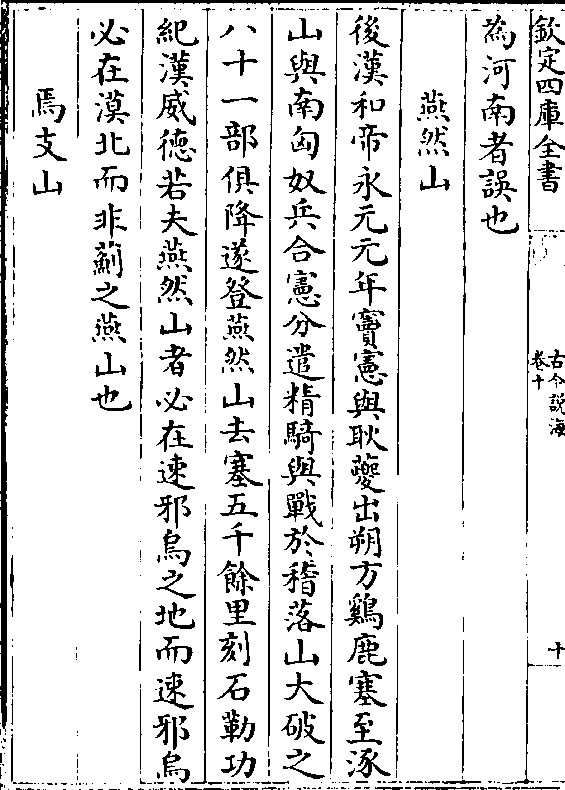 欽定四庫全書
古今說海
卷十
十
為河南者誤也
燕然山
後漢和帝永元元年竇憲與耿夔出朔方鷄鹿塞至涿
山與南匈奴兵合憲分遣精騎與戰於稽落山大破之
八十一部俱降遂登燕然山去塞五千餘里刻石勒功
紀漢威德若夫燕然山者必在速邪烏之地而速邪烏
必在漠北而非薊之燕山也
焉支山